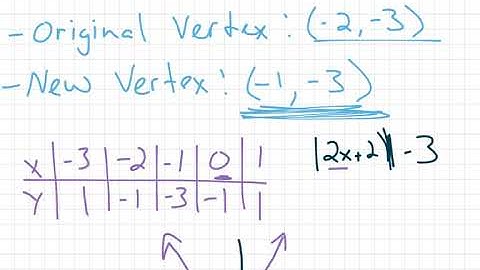 - Original Vertex: (-2,-3)
- New Vertex: (-1,-3)
X | -3 | -2 | -1 | 0 | 1
Y | 1 | -1 | -3 | -1 | 1
|2x+2| - 3